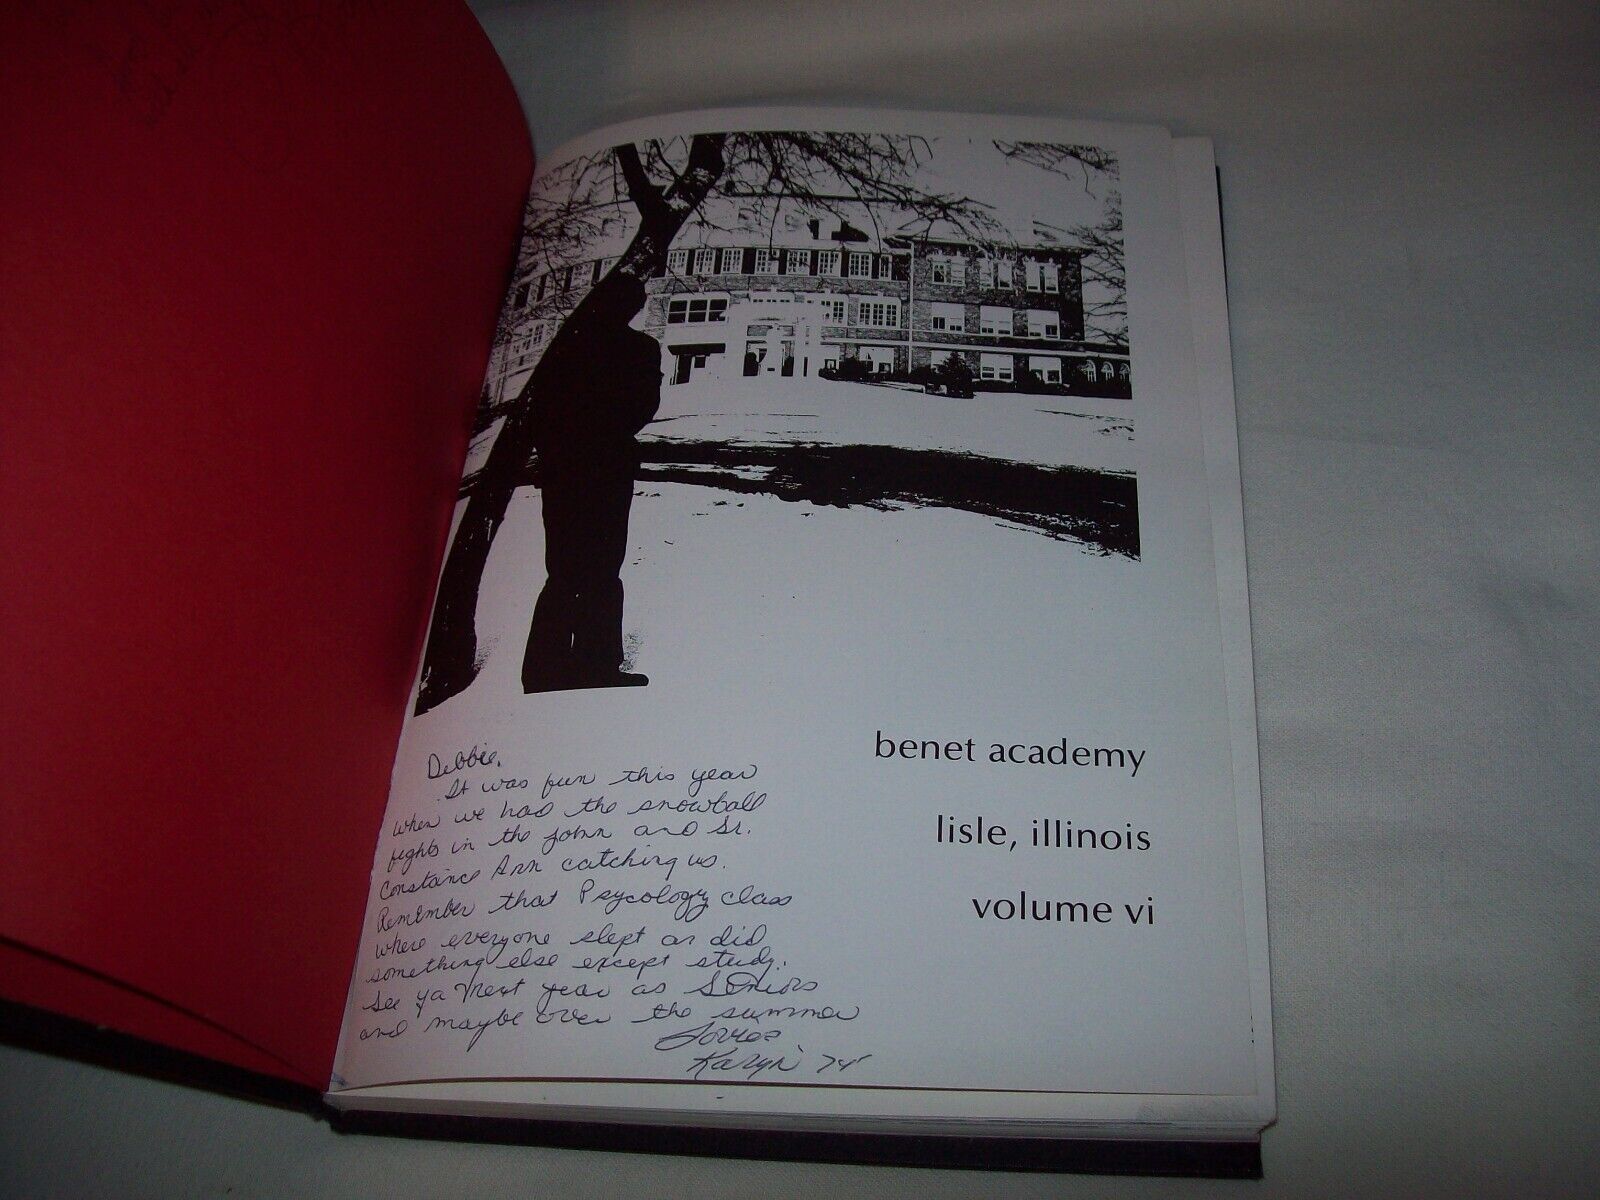 benet academy
lisle, illinois
volume vi
Debbie,
It was fun this year
when we had the snowball
fights in the john and Sr.
Constance Ann catching us.
Remember that Psycology class
where everyone slept or did
something else except study.
See ya next year as Seniors
and maybe over the summer
Karyn 74'